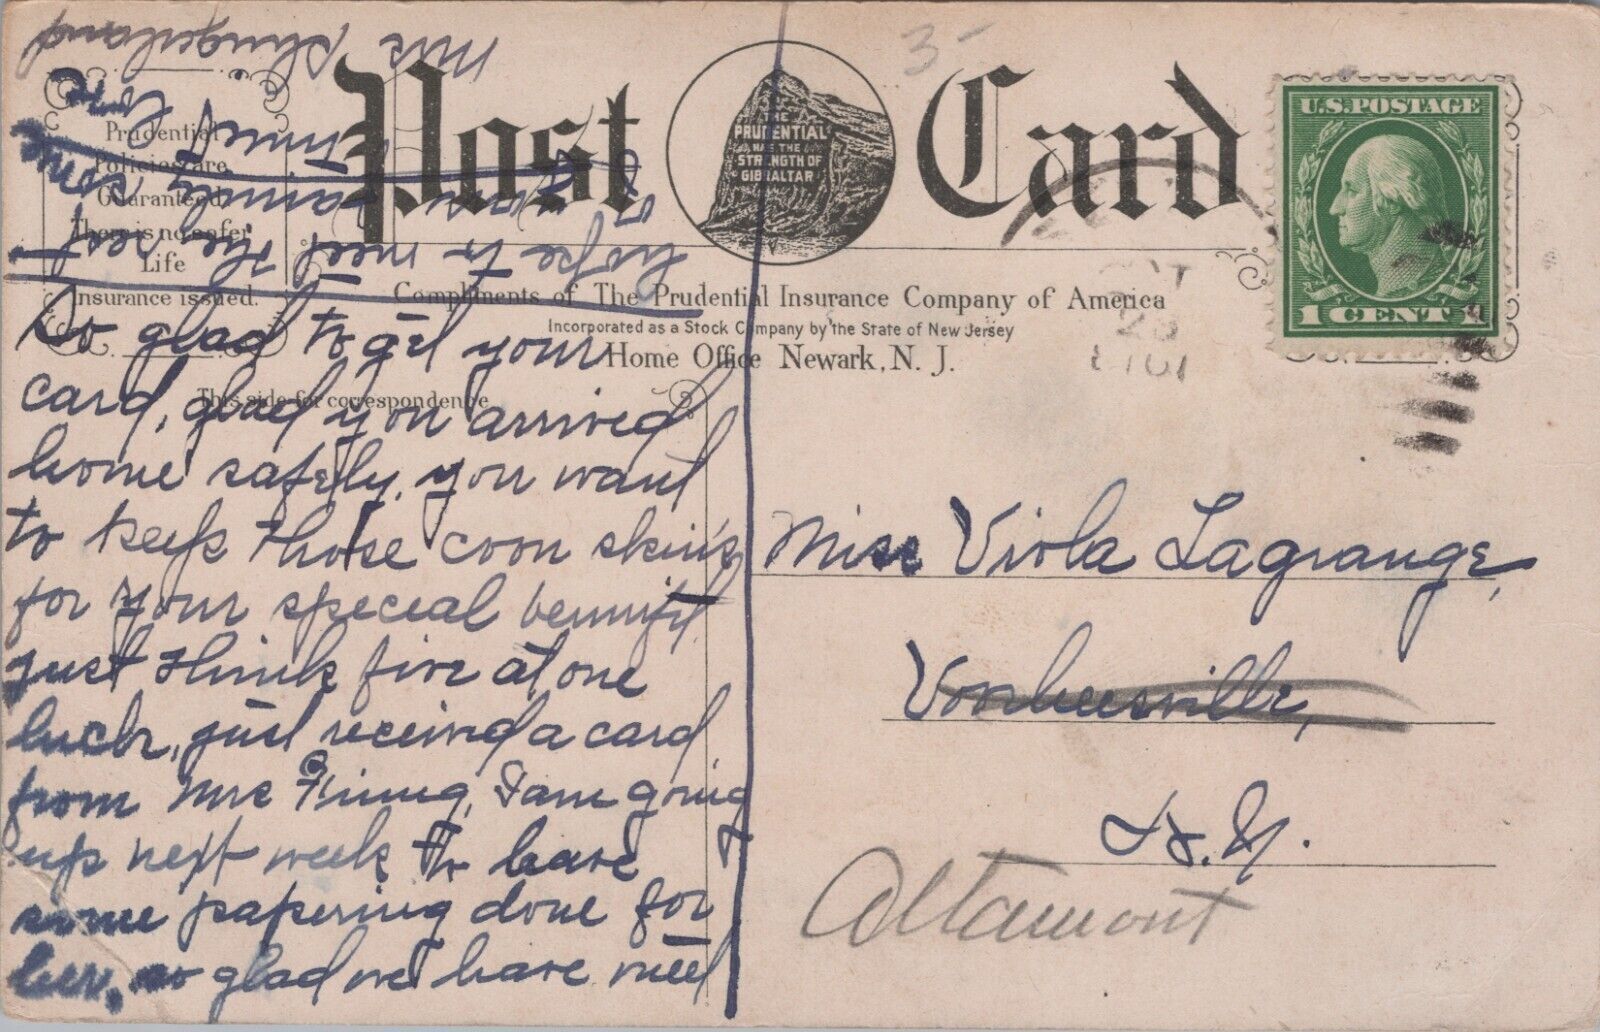 Post Card
3-
THE
PRUDENTIAL
HAS THE
STRENGTH OF
GIBRALTAR
U.S. POSTAGE
1 CENT 1
Prudential
Policies are
Guaranteed.
There is no safer
Life
Insurance issued.
Compliments of The Prudential Insurance Company of America
Incorporated as a Stock Company by the State of New Jersey
Home Office Newark, N. J.
This side for correspondence
So glad to get your
card, glad you arrived
home safely, you want
to keep those coon skin's
for your special bennifit,
just think five at one
luck, just received a card
from Mrs I am going
up next week to have
some papering done for
her, so glad we have met
hope to meet the rest
of your family some
time,
Mrs Slingerland
Miss Viola Lagrange,
Voorheesville,
N.Y.
Altamont